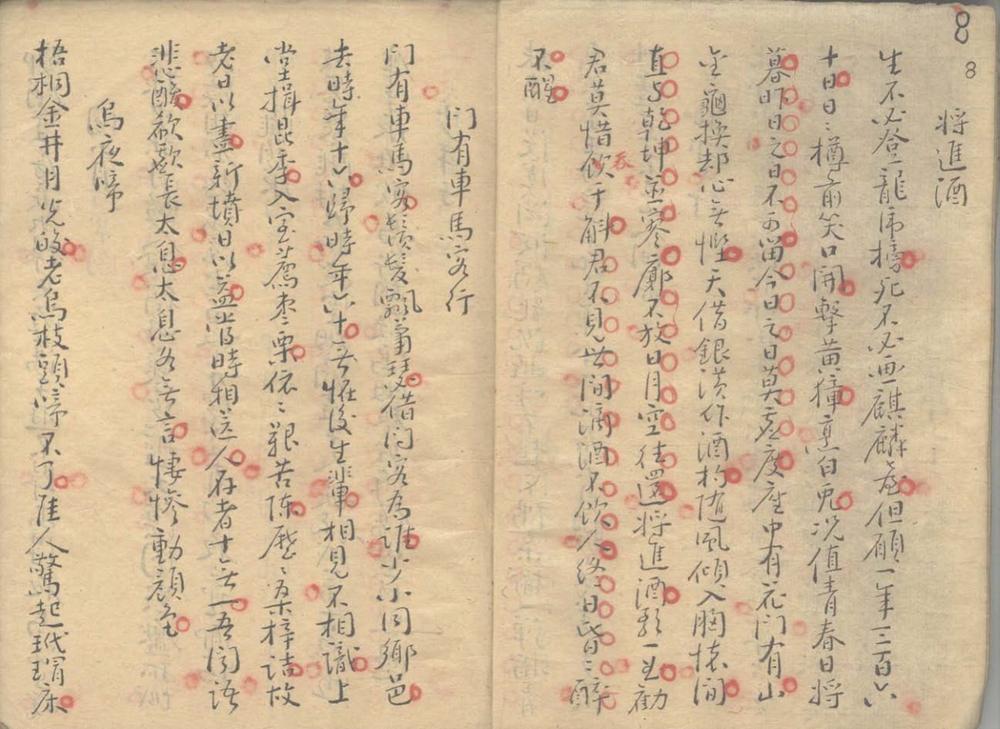 8
8
將進酒
生不必登龍虎榜死不必画麒麟㙜但願一年三百六
十日日〻樽前笑口開擊黃獐烹白兎况值青春日將
暮昨日之日不可留今日之日莫虗度座中有花門有山
金龜換却心無慳天借銀潢作酒杓随風傾入胸懷間
直与乾坤並寥廓不放日月空徃還將進酒歌一曲勸
君莫惜飲千斛君不見世間滴酒不飲人終日昏〻醉
不醒
門有車馬客行
門有車馬客鬚髮飄蕭瑟借问客為誰少小同鄉邑
去時年十六歸時年六十無恠後生輩相見不相識上
堂揖昆季入室薦枣栗依〻艱苦陈歷〻桑梓詰故
老日以盡新墳日以益當時相送人存者十無一吾闻語
悲酸欷歔長太息太息各無言悽惨動顔色
烏夜啼
梧桐金井月光皎老烏枝頭啼不了佳人驚起玳瑁床